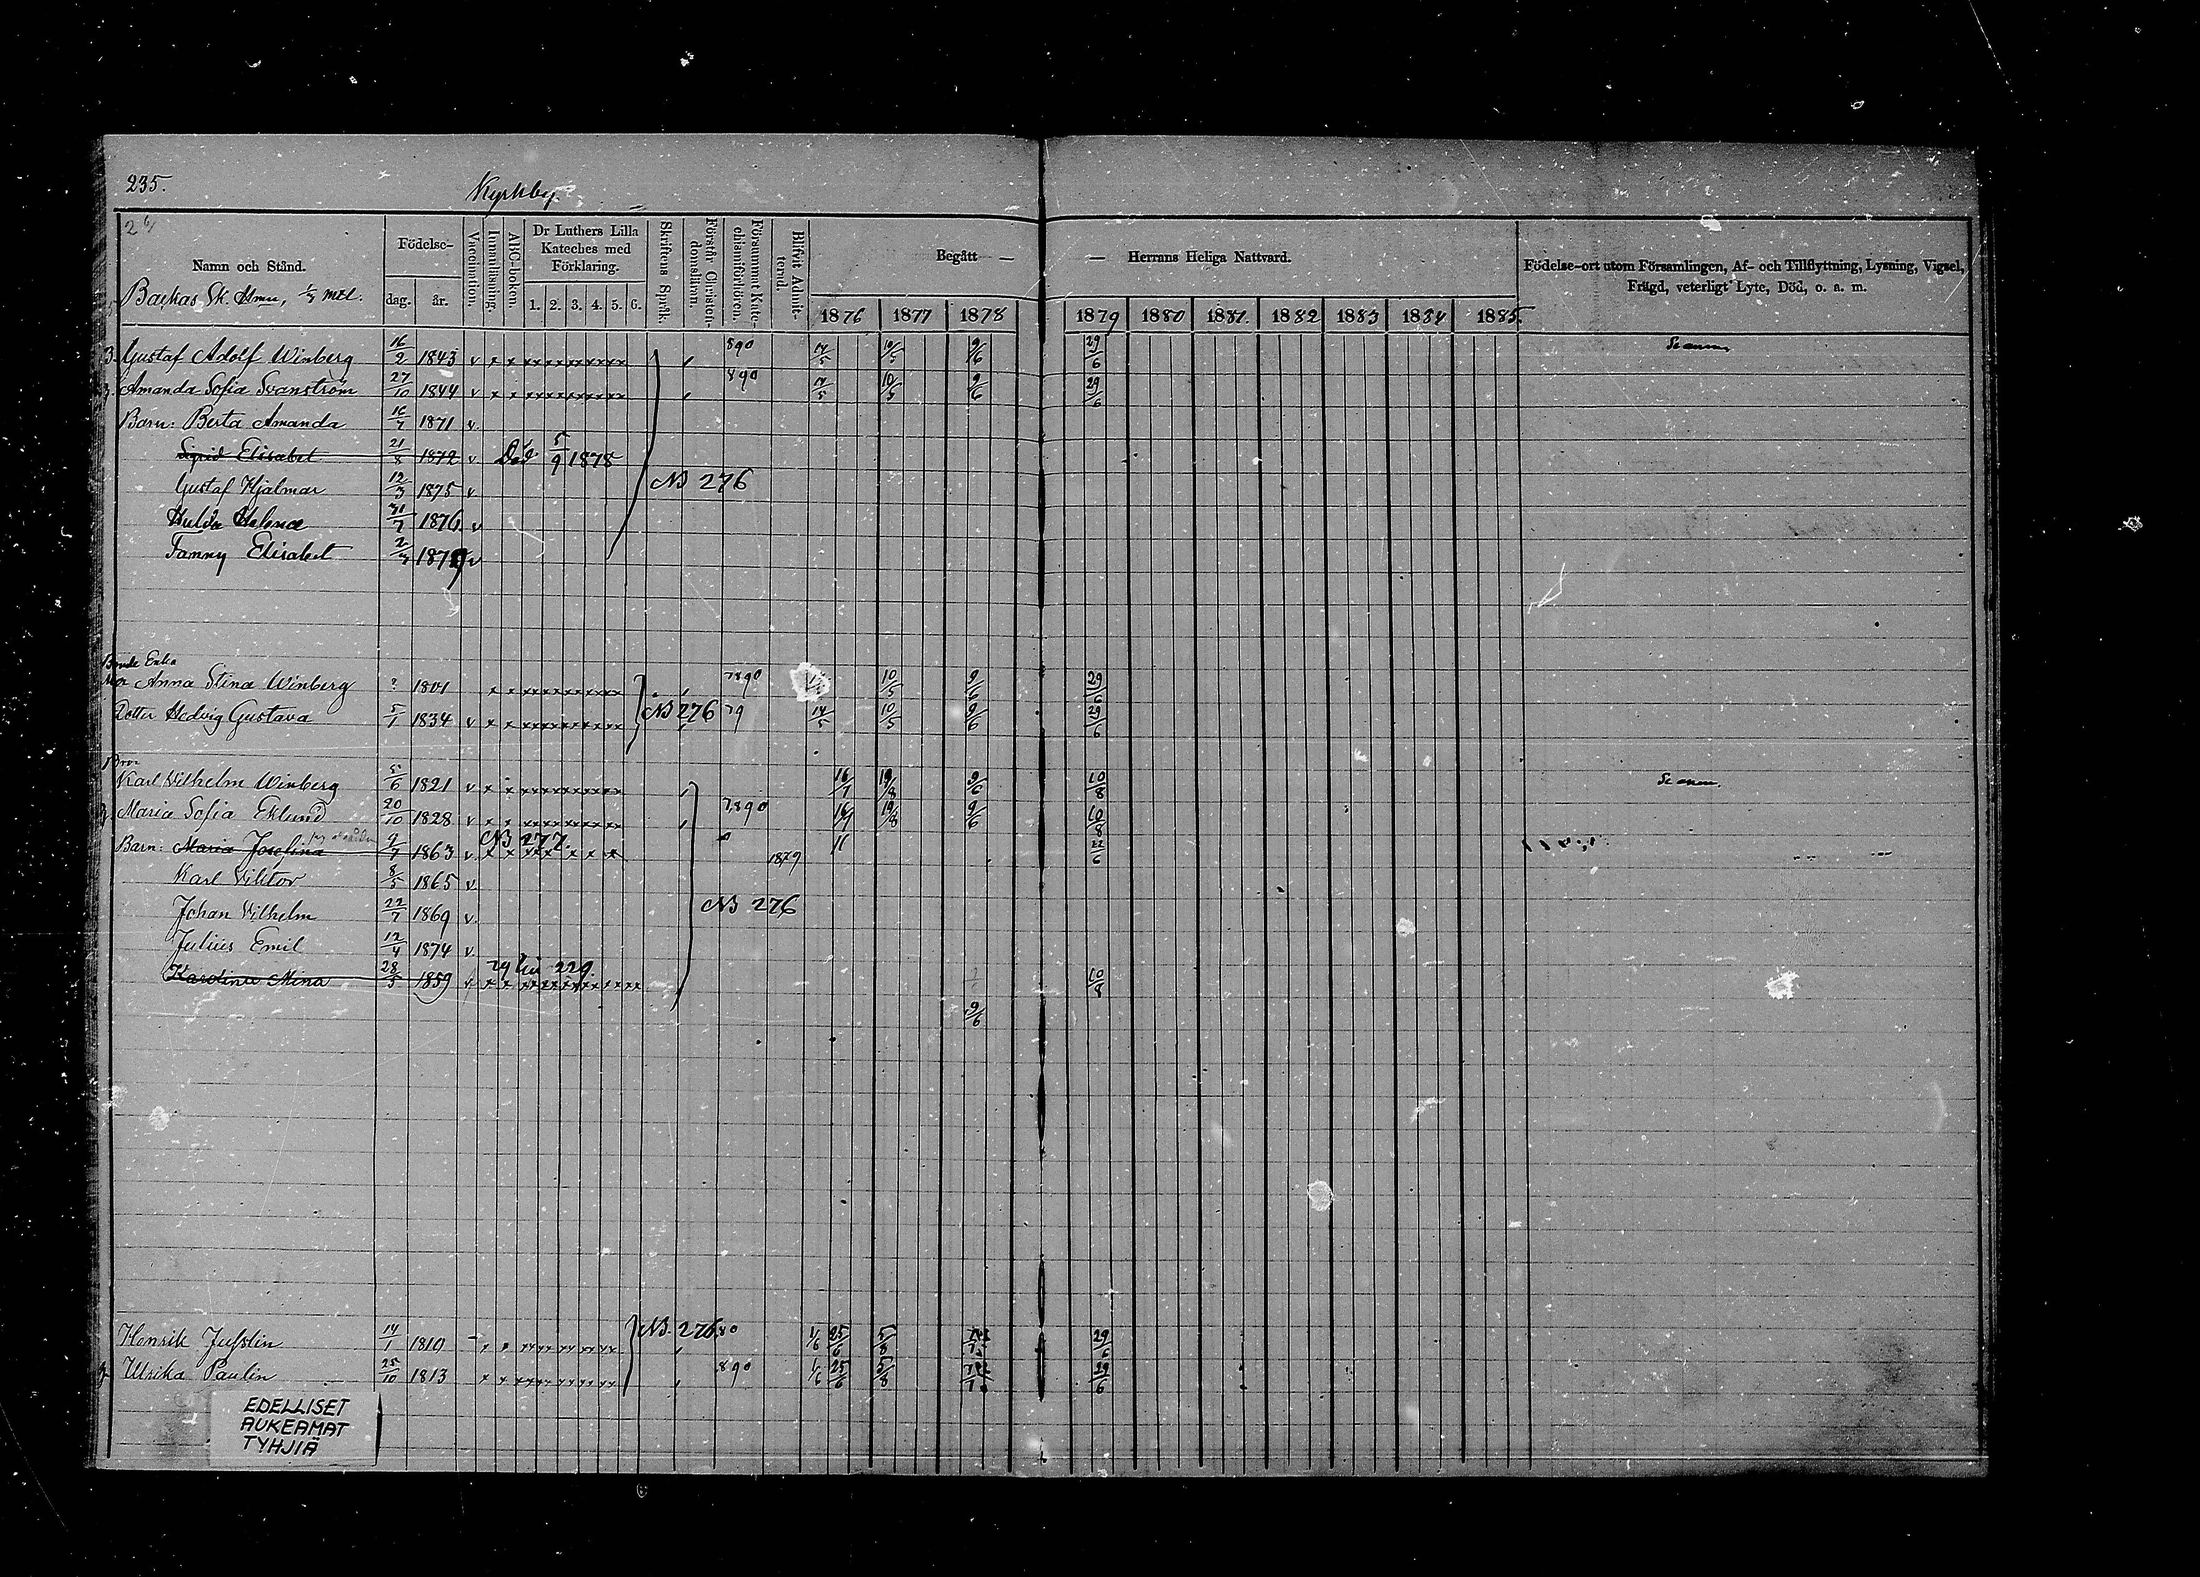 235. Kyrkby.
Namn och Stånd.
Födelse-
dag. år.
Vaccination.
Innanläsning.
ABC-boken.
Dr Luthers Lilla
Kateches med
Förklaring.
1. 2. 3. 4. 5. 6.
Skriftens Språk.
Förstår Christen-
domsläran.
Försummat Kate-
chismiförhören.
Blifvit Admit-
terad.
Begått — — Herrans Heliga Nattvard.
1876 1877 1878 1879 1880 1881 1882 1883 1884 1885
Födelse-ort utom Församlingen, Af- och Tillflyttning, Lysning, Vigsel,
Frägd, veterligt Lyte, Död, o. a. m.
Gustaf Adolf Winberg 16/2 1843 v 890 14/5 10/5 9/6 29/6
Amanda Sofia Svanström 27/10 1844 v 890 14/5 10/5 9/6 29/6
Barn: Berta Amanda 16/7 1871 v
Sigrid Elisabet 21/8 1872 v Död 5/9 1878
Gustaf Hjalmar 12/3 1875 v NB 276
Hulda Helena 31/7 1876 v
Fanny Elisabet 1879 v
Bonde Enka
Mor Anna Stina Winberg ? 1801 7890 10/5 9/6 29/6
Dotter Hedvig Gustava 5/1 1834 v NB 276 79 14/5 10/5 9/6 29/6
Bror
Karl Vilhelm Winberg 5/6 1821 v 16/7 19/8 9/6 10/8
Maria Sofia Eklund 20/10 1828 v 7890 16/7 19/8 9/6 10/8
Barn: Maria Josefina 9/7 1863 v NB 277. 1879 22/6
Karl Viktor 8/5 1865 v
Johan Vilhelm 22/7 1869 v NB 276
Julius Emil 12/4 1874 v
Karolina Mina 28/5 1859 79 till 229. 10/8
9/6
Henrik Jusslin 14/1 1810 NB. 276 80 1/6 25/6 5/8 29/6
Ulrika Paulin 25/10 1813 890 1/6 25/6 5/8 29/6
EDELLISET
AUKEAMAT
TYHJIÄ